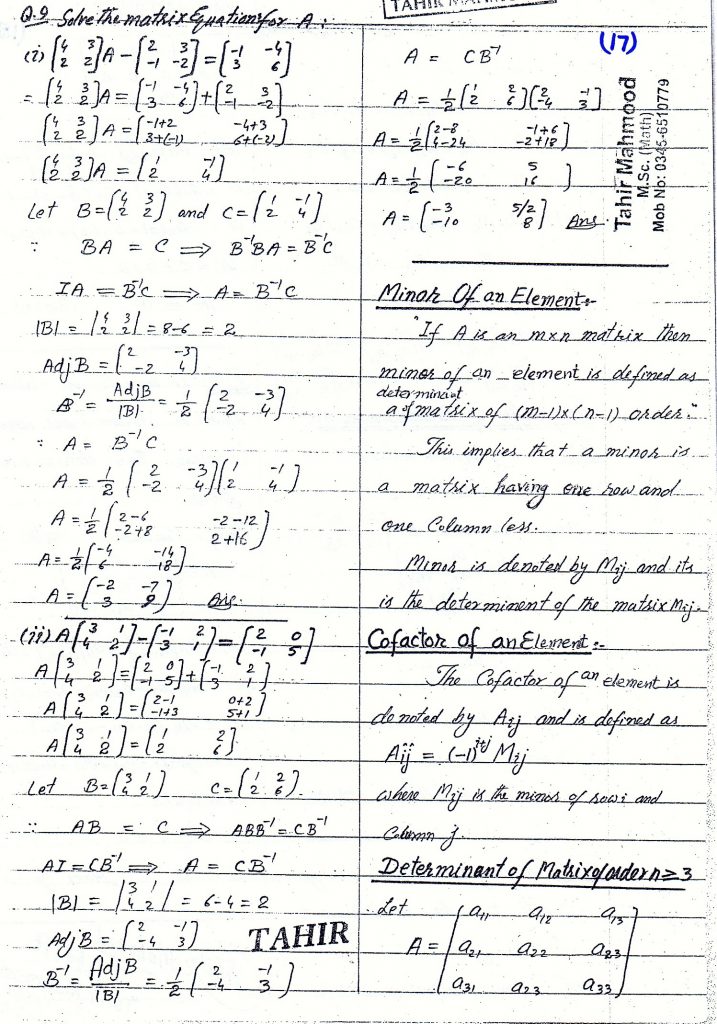 TAHIR
Q.9 Solve the matrix Equations for A :
(i) [4 3; 2 2]A - [2 3; -1 -2] = [-1 -4; 3 6]
= [4 3; 2 2]A = [-1 -4; 3 6] + [2 3; -1 -2]
[4 3; 2 2]A = [-1+2 -4+3; 3+(-1) 6+(-2)]
[4 3; 2 2]A = [1 -1; 2 4]
Let B = [4 3; 2 2] and C = [1 -1; 2 4]
∵ BA = C ⟹ B⁻¹BA = B⁻¹C
IA = B⁻¹C ⟹ A = B⁻¹C
|B| = |4 3; 2 2| = 8-6 = 2
Adj B = [2 -3; -2 4]
B⁻¹ = Adj B / |B| = 1/2 [2 -3; -2 4]
∵ A = B⁻¹C
A = 1/2 [2 -3; -2 4][1 -1; 2 4]
A = 1/2 [2-6 -2-12; -2+8 2+16]
A = 1/2 [-4 -14; 6 18]
A = [-2 -7; 3 9] Ans.
(ii) A[3 1; 4 2] - [-1 2; 3 1] = [2 0; -1 5]
A[3 1; 4 2] = [2 0; -1 5] + [-1 2; 3 1]
A[3 1; 4 2] = [2-1 0+2; -1+3 5+1]
A[3 1; 4 2] = [1 2; 2 6]
Let B = [3 1; 4 2] C = [1 2; 2 6].
∵ AB = C ⟹ ABB⁻¹ = CB⁻¹
AI = CB⁻¹ ⟹ A = CB⁻¹
|B| = |3 1; 4 2| = 6-4 = 2
Adj B = [2 -1; -4 3]
TAHIR
B⁻¹ = Adj B / |B| = 1/2 [2 -1; -4 3]
(17)
A = CB⁻¹
A = 1/2 [1 2; 2 6][2 -1; -4 3]
A = 1/2 [2-8 -1+6; 4-24 -2+18]
A = 1/2 [-6 5; -20 16]
A = [-3 5/2; -10 8] Ans.
Tahir Mahmood
M.Sc. (Math)
Mob No: 0345-6510779
Minor Of an Element:-
"If A is an m×n matrix then
minor of an element is defined as
determinant
a of matrix of (m-1)×(n-1) order."
This implies that a minor is
a matrix having one row and
one Column less.
Minor is denoted by Mij and its
is the determinent of the matrix Mij.
Cofactor of an Element:-
The Cofactor of an element is
denoted by Aij and is defined as
Aij = (-1)^i+j Mij
where Mij is the minor of row i and
Column j.
Determinant of Matrix of order n≥3
Let
A = [a11 a12 a13; a21 a22 a23; a31 a23 a33]